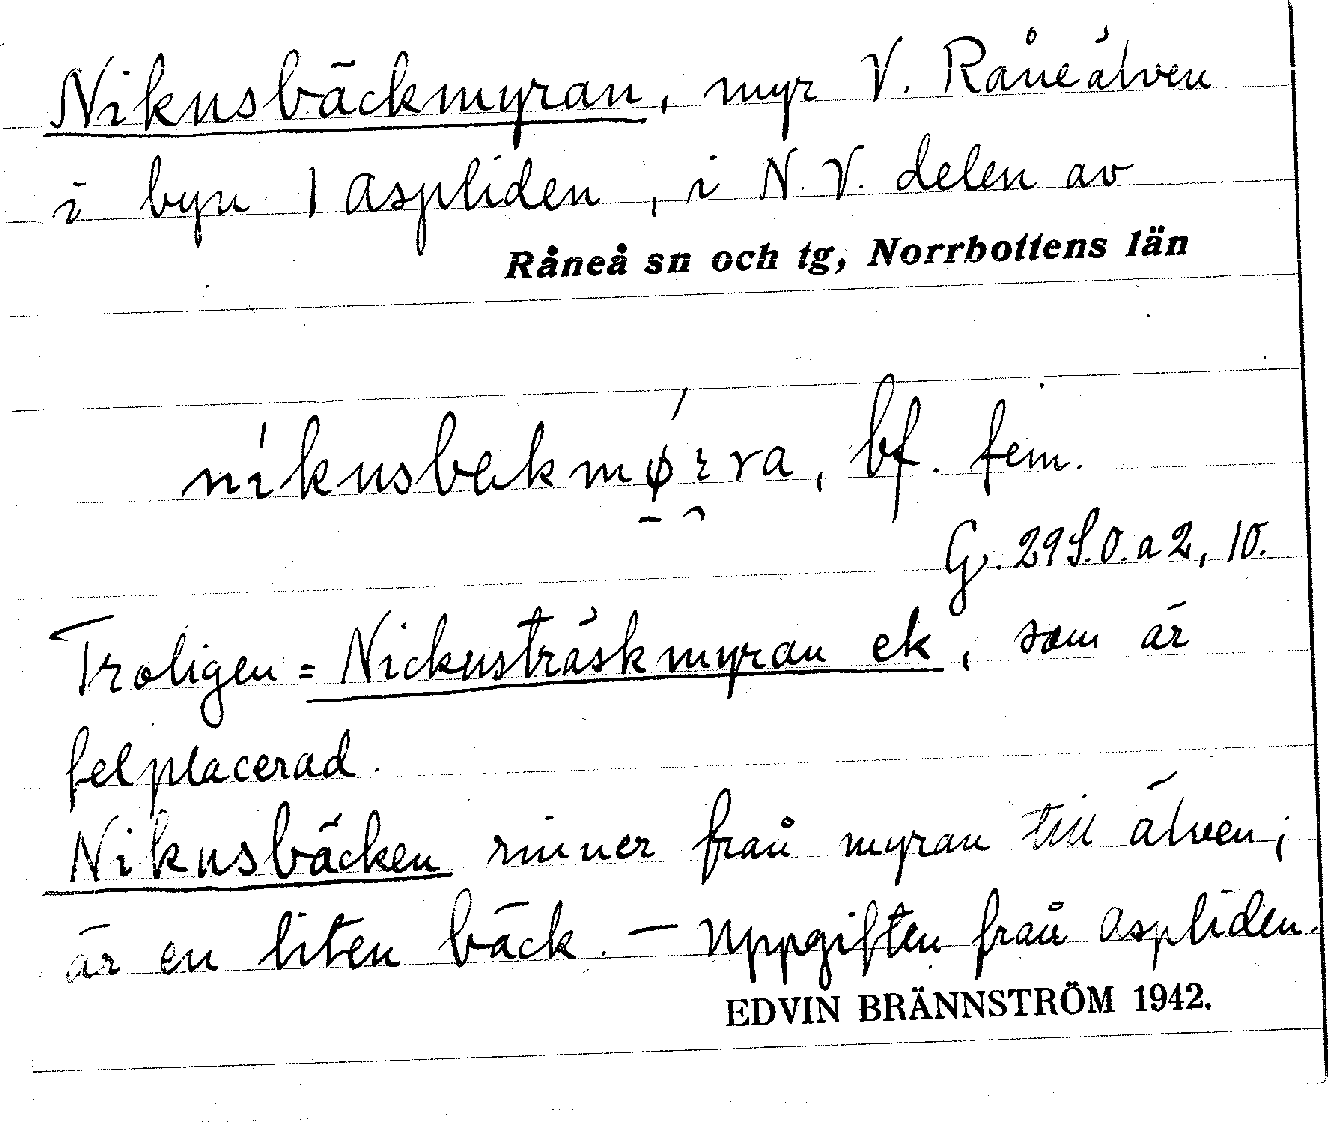 Nikusbäckmyran, myr V. Råneälven
i byn 1 Aspliden, i N.V. delen av
Råneå sn och tg, Norrbottens län
níkusbekmǿrra, bf. fem.
G. 29 S.O. a 2, 10.
Troligen = Nickusträskmyran ek, som är
felplacerad.
Nikusbäcken rinner från myran till älven;
är en liten bäck. — Uppgiften från Aspliden.
EDVIN BRÄNNSTRÖM 1942.